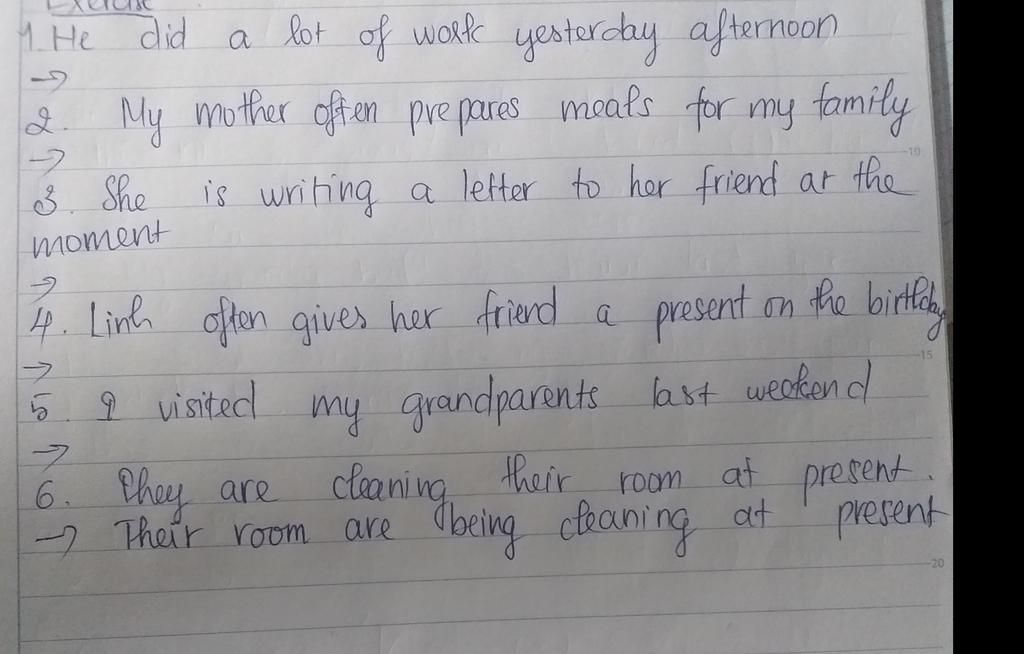 Exercise
1. He did a lot of work yesterday afternoon
→
2. My mother often prepares meals for my family
→
3. She is writing a letter to her friend at the
moment
→
4. Linh often gives her friend a present on the birthday
→
5. I visited my grandparents last weekend
→
6. They are cleaning their room at present.
→ Their room are being cleaning at present
10
15
20